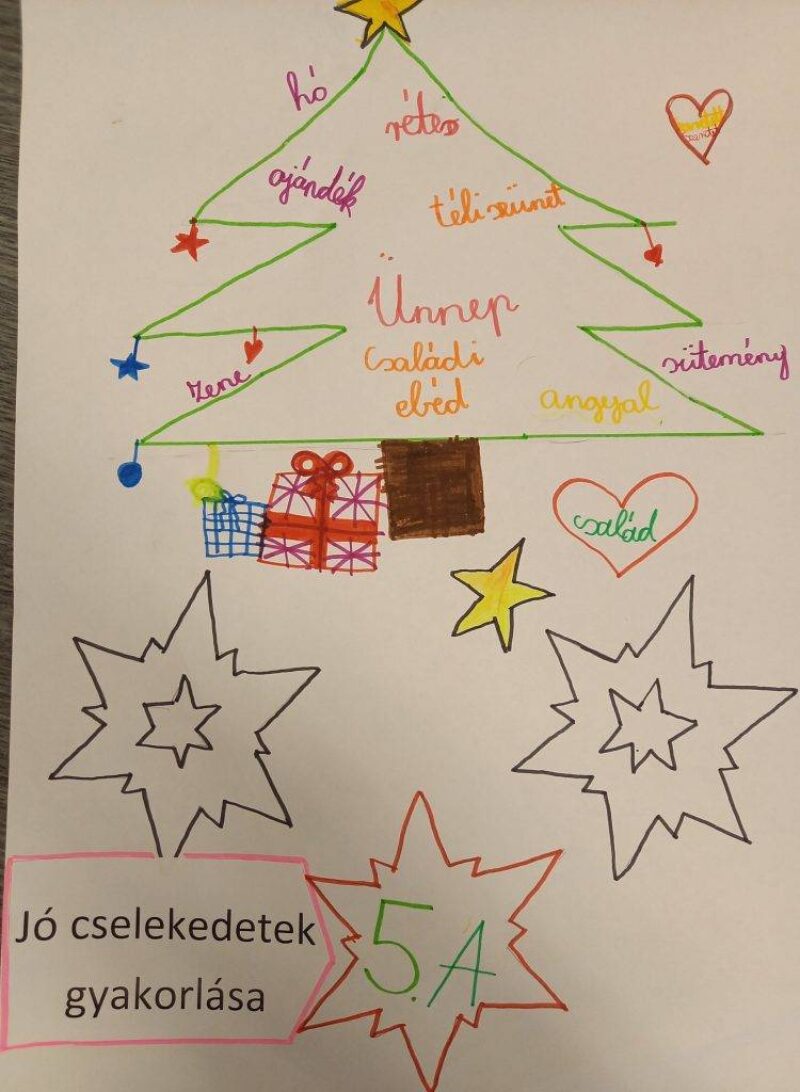 hó
rétes
ajándék
téli szünet
Ünnep
Családi
ebéd
zene
angyal
sütemény
család
Jó cselekedetek
gyakorlása
5.A